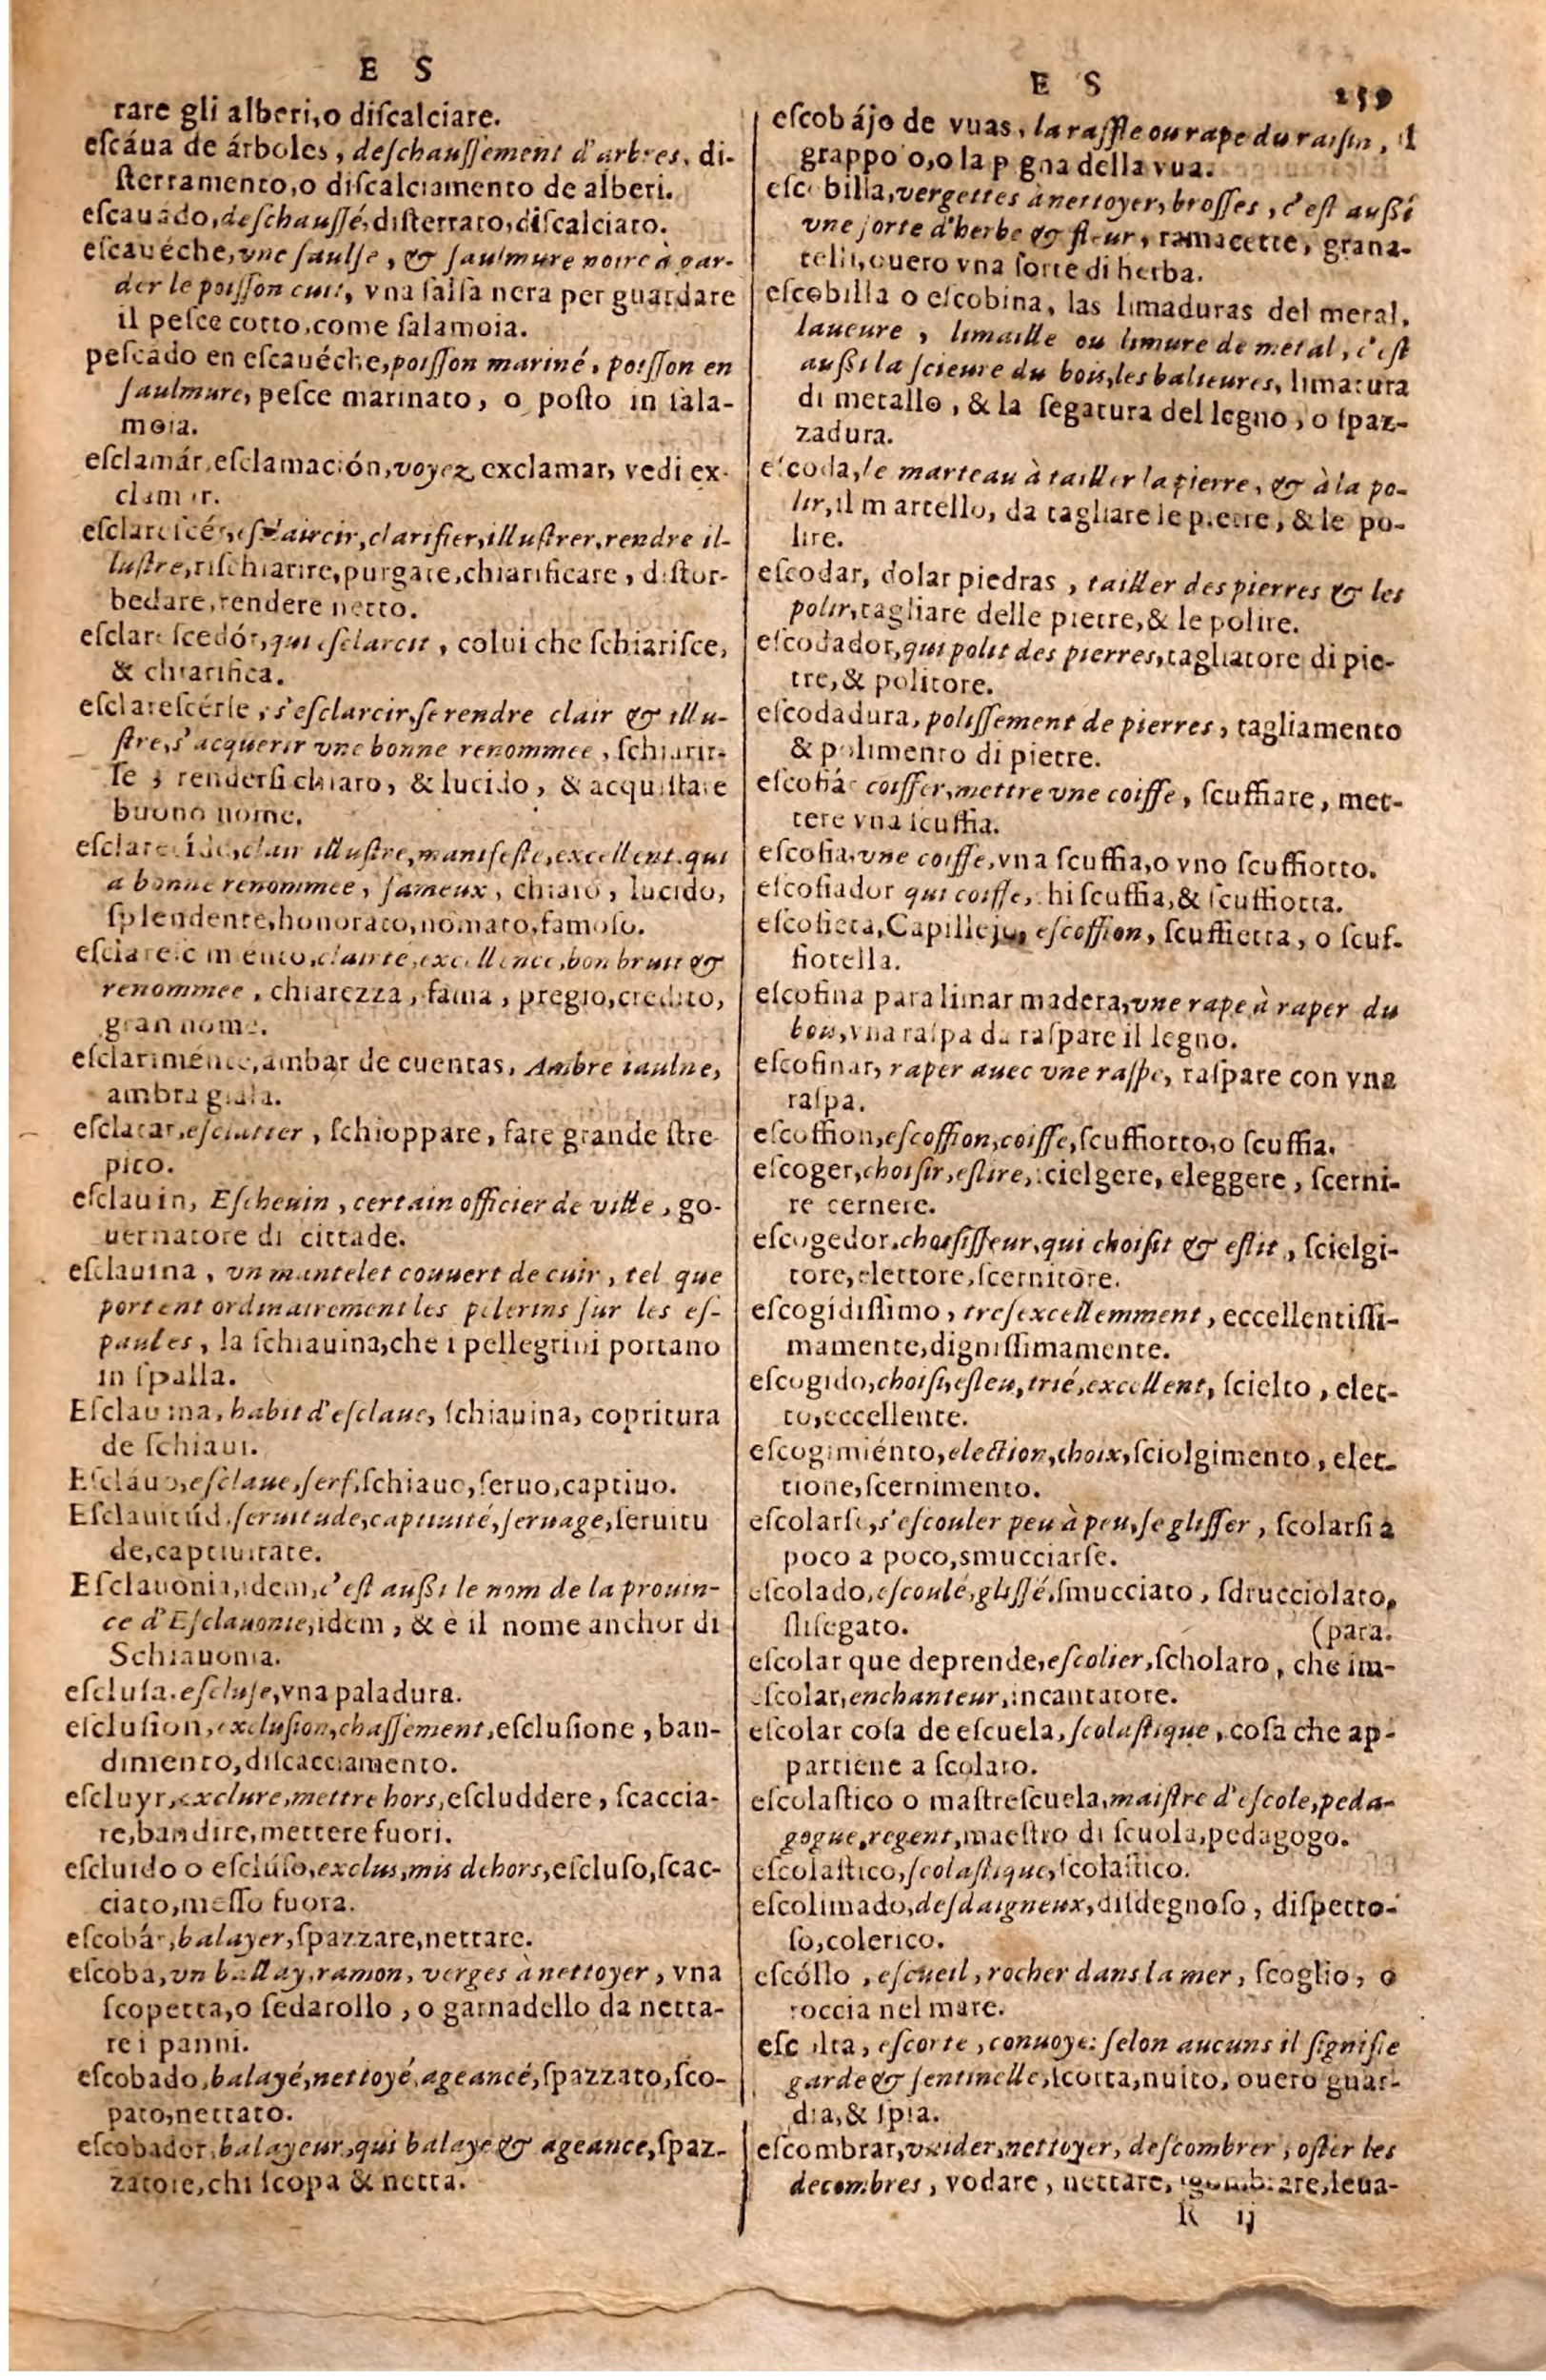 E S
rare gli alberi,o diſcalciare.
eſcáua de árboles, deſchauſſement d'arbres, di-
ſterramento,o diſcalciamento de alberi.
eſcauádo,deſchauſſé,diſterrato,diſcalciato.
eſcauéche,vne ſaulſe, & ſaulmure noire à gar-
der le poiſſon cuit, vna ſalſa nera per guardare
il peſce cotto,come ſalamoia.
peſcádo en eſcauéche,poiſſon mariné, poiſſon en
ſaulmure, peſce marinato, o poſto in ſala-
moia.
eſclamár,eſclamación,voyez exclamar, vedi ex-
clamar.
eſclareſcér,eſclaircir,clarifier,illuſtrer,rendre il-
luſtre,riſchiarire,purgare,chiarificare, diſtor-
bedare,rendere netto.
eſclareſcedór,qui eſclarcit, colui che ſchiariſce,
& chiarifica.
eſclareſcérſe, s'eſclarcir,ſe rendre clair & illu-
ſtre,s'acquerir vne bonne renommee, ſchiarir-
ſe, renderſi chiaro, & lucido, & acquiſtare
buono nome.
eſclarecído,clair illuſtre,manifeſte,excellent.qui
a bonne renommee, fameux, chiaro, lucido,
ſplendente,honorato,nomato,famoſo.
eſclareſcimiento,clairté,excellence,bon bruit &
renommee, chiarezza, fama, pregio,credito,
gran nome.
eſclariménte,ambar de cuentas, Ambre iaulne,
ambra giala.
eſclatar,eſclatter, ſchioppare, fare grande ſtre
pito.
eſclauin, Eſcheuin, certain officier de ville, go-
uernatore di cittade.
eſclauina, vn mantelet couuert de cuir, tel que
portent ordinairement les pelerins ſur les eſ-
paules, la ſchiauina,che i pellegrini portano
in ſpalla.
Eſclauina, habit d'eſclaue, ſchiauina, copritura
de ſchiaui.
Eſcláuo,eſclaue,ſerf,ſchiauo,ſeruo,captiuo.
Eſclauitúd.ſeruitude,captiuité,ſeruage,ſeruitu
de,captiuitate.
Eſclauónia,idem,c'eſt auſſi le nom de la prouin-
ce d'Eſclauonie,idem, & è il nome anchor di
Schiauonia.
eſcluſa.eſcluſe,vna paladura.
eſcluſion,excluſion,chaſſement,eſcluſione, ban-
dimento,diſcacciamento.
eſcluyr,exclure,mettre hors,eſcluddere, ſcaccia-
re,bandire,mettere fuori.
eſcluido o eſclúſo,exclus,mis dehors,eſcluſo,ſcac-
ciato,meſſo fuora.
eſcobár,balayer,ſpazzare,nettare.
eſcoba,vn ballay,ramon, verges à nettoyer, vna
ſcopetta,o ſedarollo, o garnadello da netta-
re i panni.
eſcobado,balayé,nettoyé,ageancé,ſpazzato,ſco-
pato,nettato.
eſcobador,balayeur,qui balaye & ageance,ſpaz-
zatore,chi ſcopa & netta.
E S 259
eſcobájo de vuas, la raffle ou rape du raiſin, il
grappo o,o la p gna della vua.
eſcobilla,vergettes à nettoyer,broſſes, c'eſt auſſi
vne ſorte d'herbe & fleur, ramacette, grana-
telli,ouero vna ſorte di herba.
eſcobilla o eſcobina, las limaduras del metal,
laueure, limaille ou limure de metal, c'eſt
auſſi la ſcieure du bois,les balieures, limatura
di metallo, & la ſegatura del legno, o ſpaz-
zadura.
eſcoda,le marteau à tailler la pierre, & à la po-
lir,il martello, da tagliare le pietre, & le po-
lire.
eſcodar, dolar piedras, tailler des pierres & les
polir,tagliare delle pietre,& le polire.
eſcodador,qui polit des pierres,tagliatore di pie-
tre,& politore.
eſcodadura, poliſſement de pierres, tagliamento
& polimento di pietre.
eſcofiár coiffer,mettre vne coiffe, ſcuffiare, met-
tere vna ſcuffia.
eſcofia,vne coiffe,vna ſcuffia,o vno ſcuffiotto.
eſcofiador qui coiffe, chi ſcuffia,& ſcuffiotta.
eſcofieta,Capillejo, eſcoffion, ſcuffietta, o ſcuf-
fiotella.
eſcofina para limar madera,vne rape à raper du
bois,vna raſpa da raſpare il legno.
eſcofinar, raper auec vne raſpe, raſpare con vna
raſpa.
eſcoffion,eſcoffion,coiffe,ſcuffiotto,o ſcuffia.
eſcoger,choiſir,eſlire,ſcielgere, eleggere, ſcerni-
re cernere.
eſcogedor,choiſiſſeur,qui choiſit & eſlit, ſcielgi-
tore,elettore,ſcernitore.
eſcogídiſſimo, treſexcellemment, eccellentiſſi-
mamente,digniſſimamente.
eſcogido,choiſi,eſleu,trié,excellent, ſcielto, elet-
to,eccellente.
eſcogimiénto,election,choix,ſciolgimento, elet-
tione,ſcernimento.
eſcolarſe,s'eſcouler peu à peu,ſe gliſſer, ſcolarſi a
poco a poco,smucciarſe.
eſcolado,eſcoulé,gliſſé,ſmucciato, ſdrucciolato,
ſliſegato. (para.
eſcolar que deprende,eſcolier,ſcholaro, che im-
eſcolar,enchanteur,incantatore.
eſcolar coſa de eſcuela,ſcolaſtique, coſa che ap-
partiene a ſcolaro.
eſcolaſtico o maſtreſcuela,maiſtre d'eſcole,peda-
gogue,regent,maeſtro di ſcuola,pedagogo.
eſcolaſtico,ſcolaſtique,ſcolaſtico.
eſcolimado,deſdaigneux,diſdegnoſo, diſpetto-
ſo,colerico.
eſcóllo, eſcueil, rocher dans la mer, ſcoglio, o
roccia nel mare.
eſc lta, eſcorte, conuoye: ſelon aucuns il ſignifie
garde & ſentinelle,ſcorta,nuito, ouero guar-
dia,& ſpia.
eſcombrar,vuider,nettoyer, deſcombrer, oſter les
decombres, vodare, nettare, ſgombrare,leua-
R ij